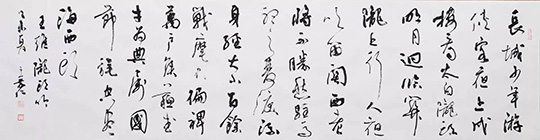 長城少年游
俠客夜上戍
樓看太白隴頭
明月迥臨關
隴上行人夜
吹笛關西老
將不勝愁駐馬
聽之雙淚流
身經大小百餘
戰麾下偏裨
萬戶侯蘇武
才為典屬國
節旄空盡
海西頭
王維隴頭吟